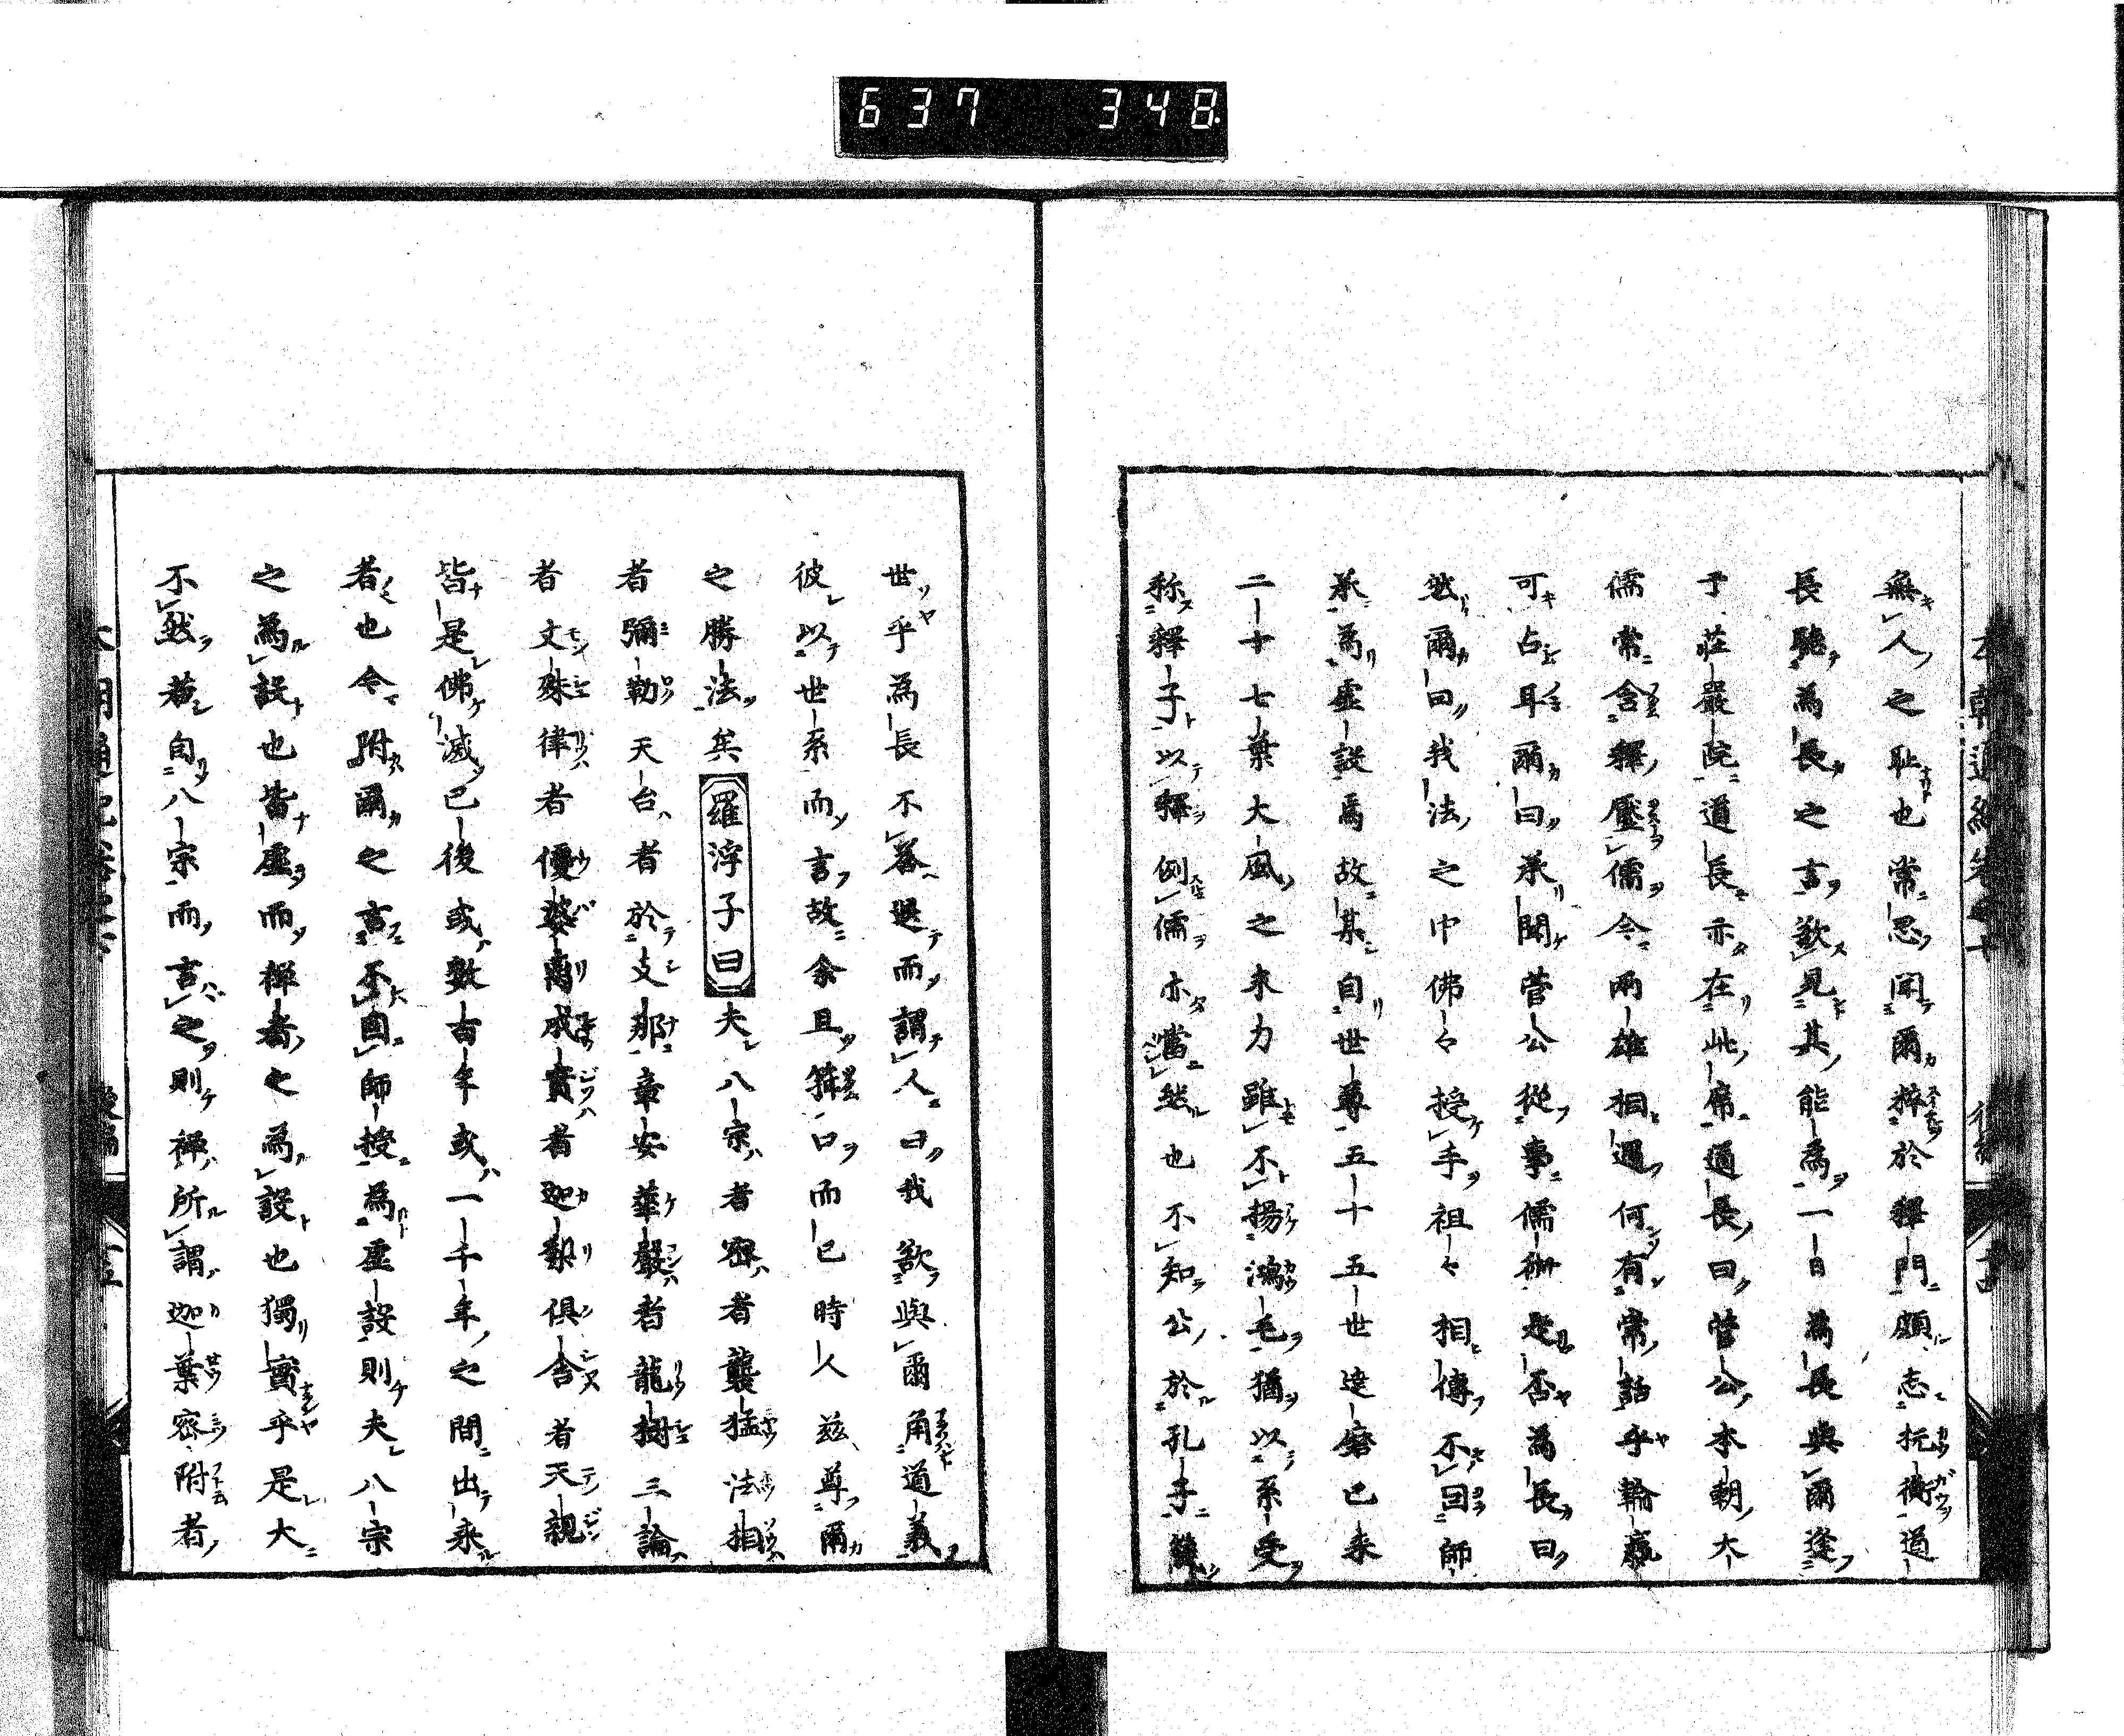 637 348
無人之耻也常思聞爾粹於釋門願志抗衡道
長聽為長之言歎見其能為一日為長與爾逢
于莊嚴院道長亦在此席道長曰菅公本朝大
儒常含釋壓儒今兩雄相遇何有常話乎輸贏
可占耳爾曰承聞菅公從事儒術是否為長曰
然爾曰我法之中佛々授手祖々相傳不曰師
承為虛設焉故某自世尊五十五世達磨已來
二十七葉大風之末力雖不揚鴻毛猶以系受
称釋子以釋例儒亦當然也不知公於孔子幾
世乎為長不答退而謂人曰我欲與爾角道義
彼以世系而言故余且箝口而已時人玆尊爾
之勝法矣羅浮子曰夫八宗者密者龔猛法相
者彌勒天台者於支那章安華嚴者龍樹三論
者文殊律者優婆离成實者迦梨俱舍者天親
皆是佛滅已後或數百年或一千年之間出承
者也今附爾之言不因師授為虛設則夫八宗
之為設也皆虛而禪者之為設也獨實乎是大
不然若自八宗而言之則禪所謂迦葉密附者